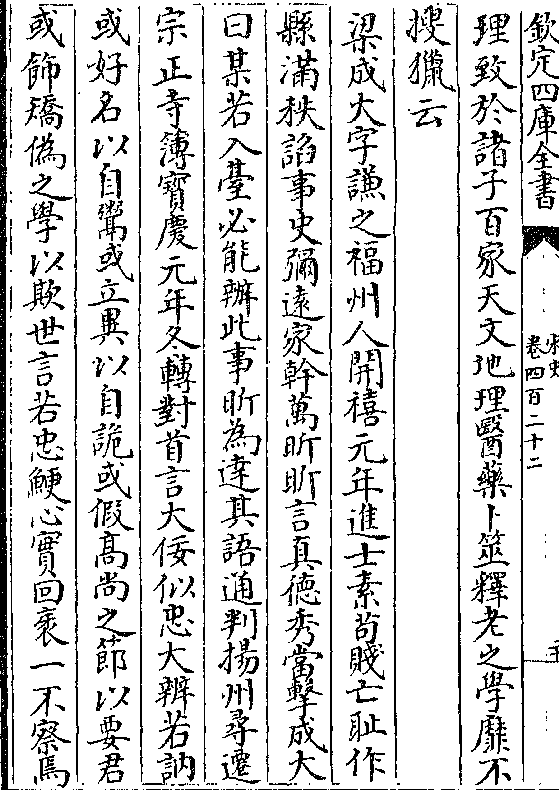 欽定四庫全書
宋史
卷四百二十二
理致於諸子百家天文地理醫藥卜筮釋老之學靡不
搜獵云
梁成大字謙之福州人開禧元年進士素苟賤亡恥作
縣滿秩諂事史彌遠家幹萬昕昕言真德秀當擊成大
曰某若入臺必能辦此事昕為達其語通判揚州尋遷
宗正寺簿寶慶元年冬轉對首言大佞似忠大辨若訥
或好名以自鬻或立異以自詭或假高尚之節以要君
或飾矯偽之學以欺世言若忠鯁心實回衺一不察焉